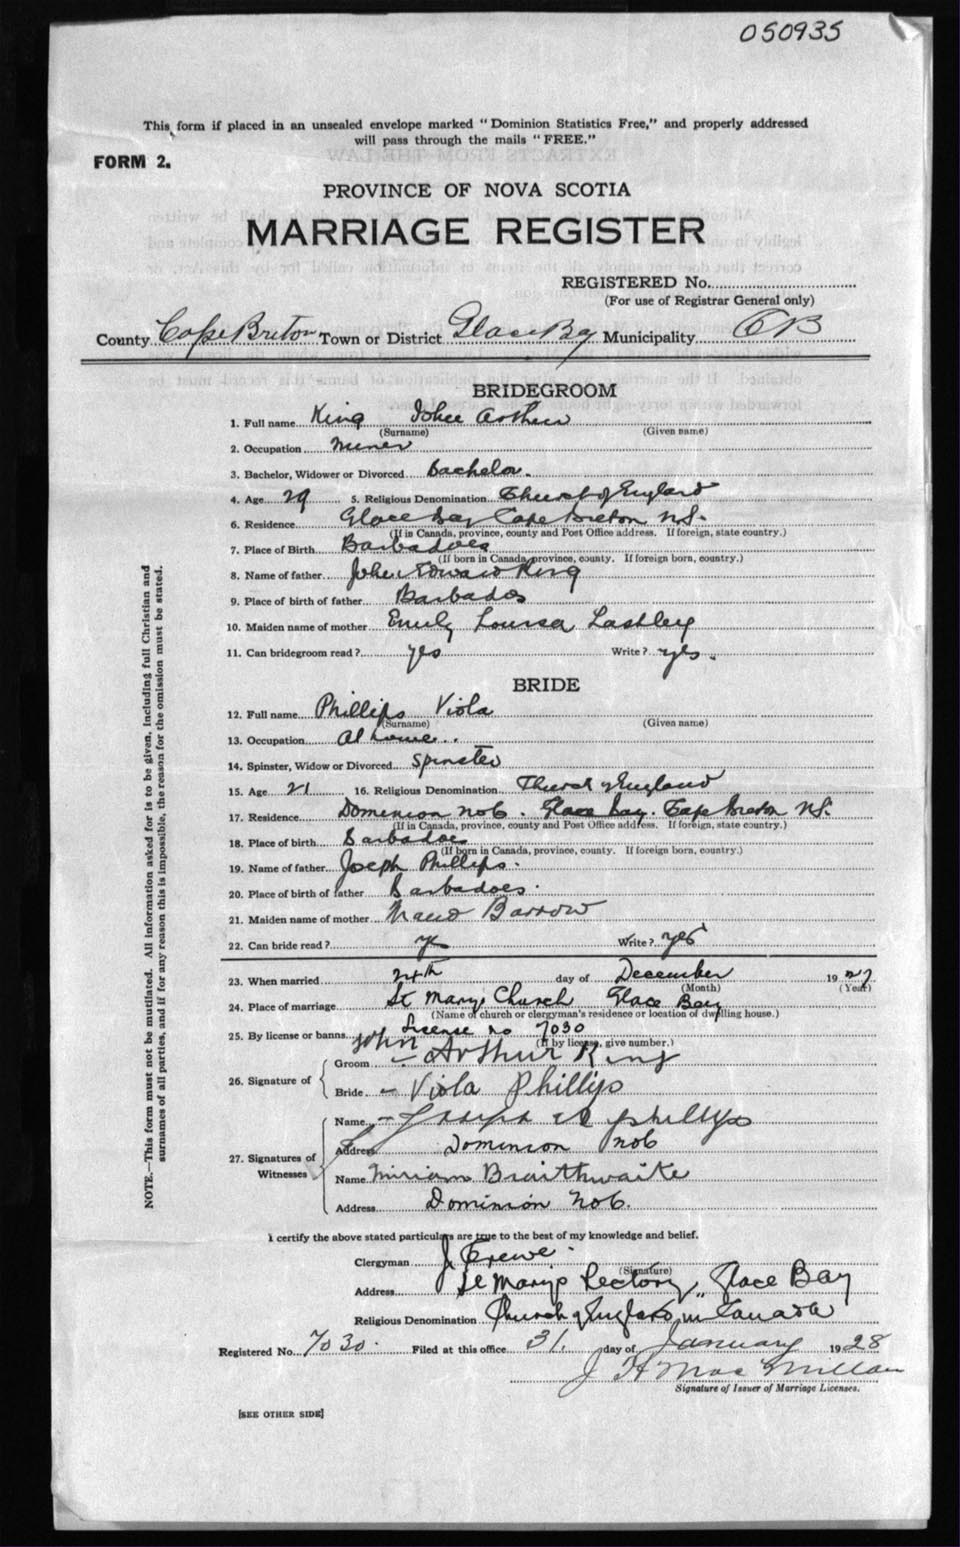 050935
This form if placed in an unsealed envelope marked "Dominion Statistics Free," and properly addressed
will pass through the mails "FREE."
FORM 2.
PROVINCE OF NOVA SCOTIA
MARRIAGE REGISTER
REGISTERED No.
(For use of Registrar General only)
County Cape Breton Town or District Glace Bay Municipality CB
BRIDEGROOM
1. Full name King John Arthur
(Surname) (Given name)
2. Occupation miner
3. Bachelor, Widower or Divorced Bachelor.
4. Age 29 5. Religious Denomination Church of England
6. Residence Glace Bay Cape Breton N.S.
(If in Canada, province, county and Post Office address. If foreign, state country.)
7. Place of Birth Barbadoes
(If born in Canada, province, county. If foreign born, country.)
8. Name of father John Edward King
9. Place of birth of father Barbados
10. Maiden name of mother Emily Louisa Lashley
11. Can bridegroom read? yes Write? yes.
BRIDE
12. Full name Phillips Viola
(Surname) (Given name)
13. Occupation At home..
14. Spinster, Widow or Divorced Spinster
15. Age 21 16. Religious Denomination Church of England
17. Residence Dominion No 6. Glace Bay. Cape Breton N.S.
(If in Canada, province, county and Post Office address. If foreign, state country.)
18. Place of birth Barbadoes
(If born in Canada, province, county. If foreign born, country.)
19. Name of father Joseph Phillips.
20. Place of birth of father Barbadoes.
21. Maiden name of mother Maud Barrow
22. Can bride read? Write? yes
23. When married 24th day of December 1927
(Month) (Year)
24. Place of marriage St Marys Church Glace Bay
(Name of church or clergyman's residence or location of dwelling house.)
25. By license or banns License no 7030
(If by license, give number.)
26. Signature of
Groom John Arthur King
Bride Viola Phillips
27. Signatures of Witnesses
Name Joseph A Phillips
Address Dominion No 6
Name Miriam Braithwaite
Address Dominion No 6.
I certify the above stated particulars are true to the best of my knowledge and belief.
Clergyman J Crewe.
(Signature)
Address St Marys Rectory, Glace Bay
Religious Denomination Church of England in Canada
Registered No. 7030. Filed at this office 31, day of January 1928
J H MacMillan
Signature of Issuer of Marriage Licenses.
[SEE OTHER SIDE]
NOTE.—This form must not be mutilated. All information asked for is to be given, including full Christian and
surnames of all parties, and if for any reason this is impossible, the reason for the omission must be stated.